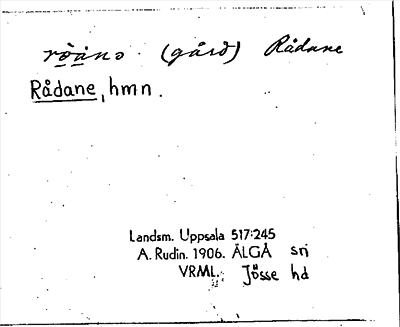 (gård) Rådane
Rådane, hmn.
Landsm. Uppsala 517:245
A. Rudin. 1906. ÄLGÅ sn
VRML. Jösse hd